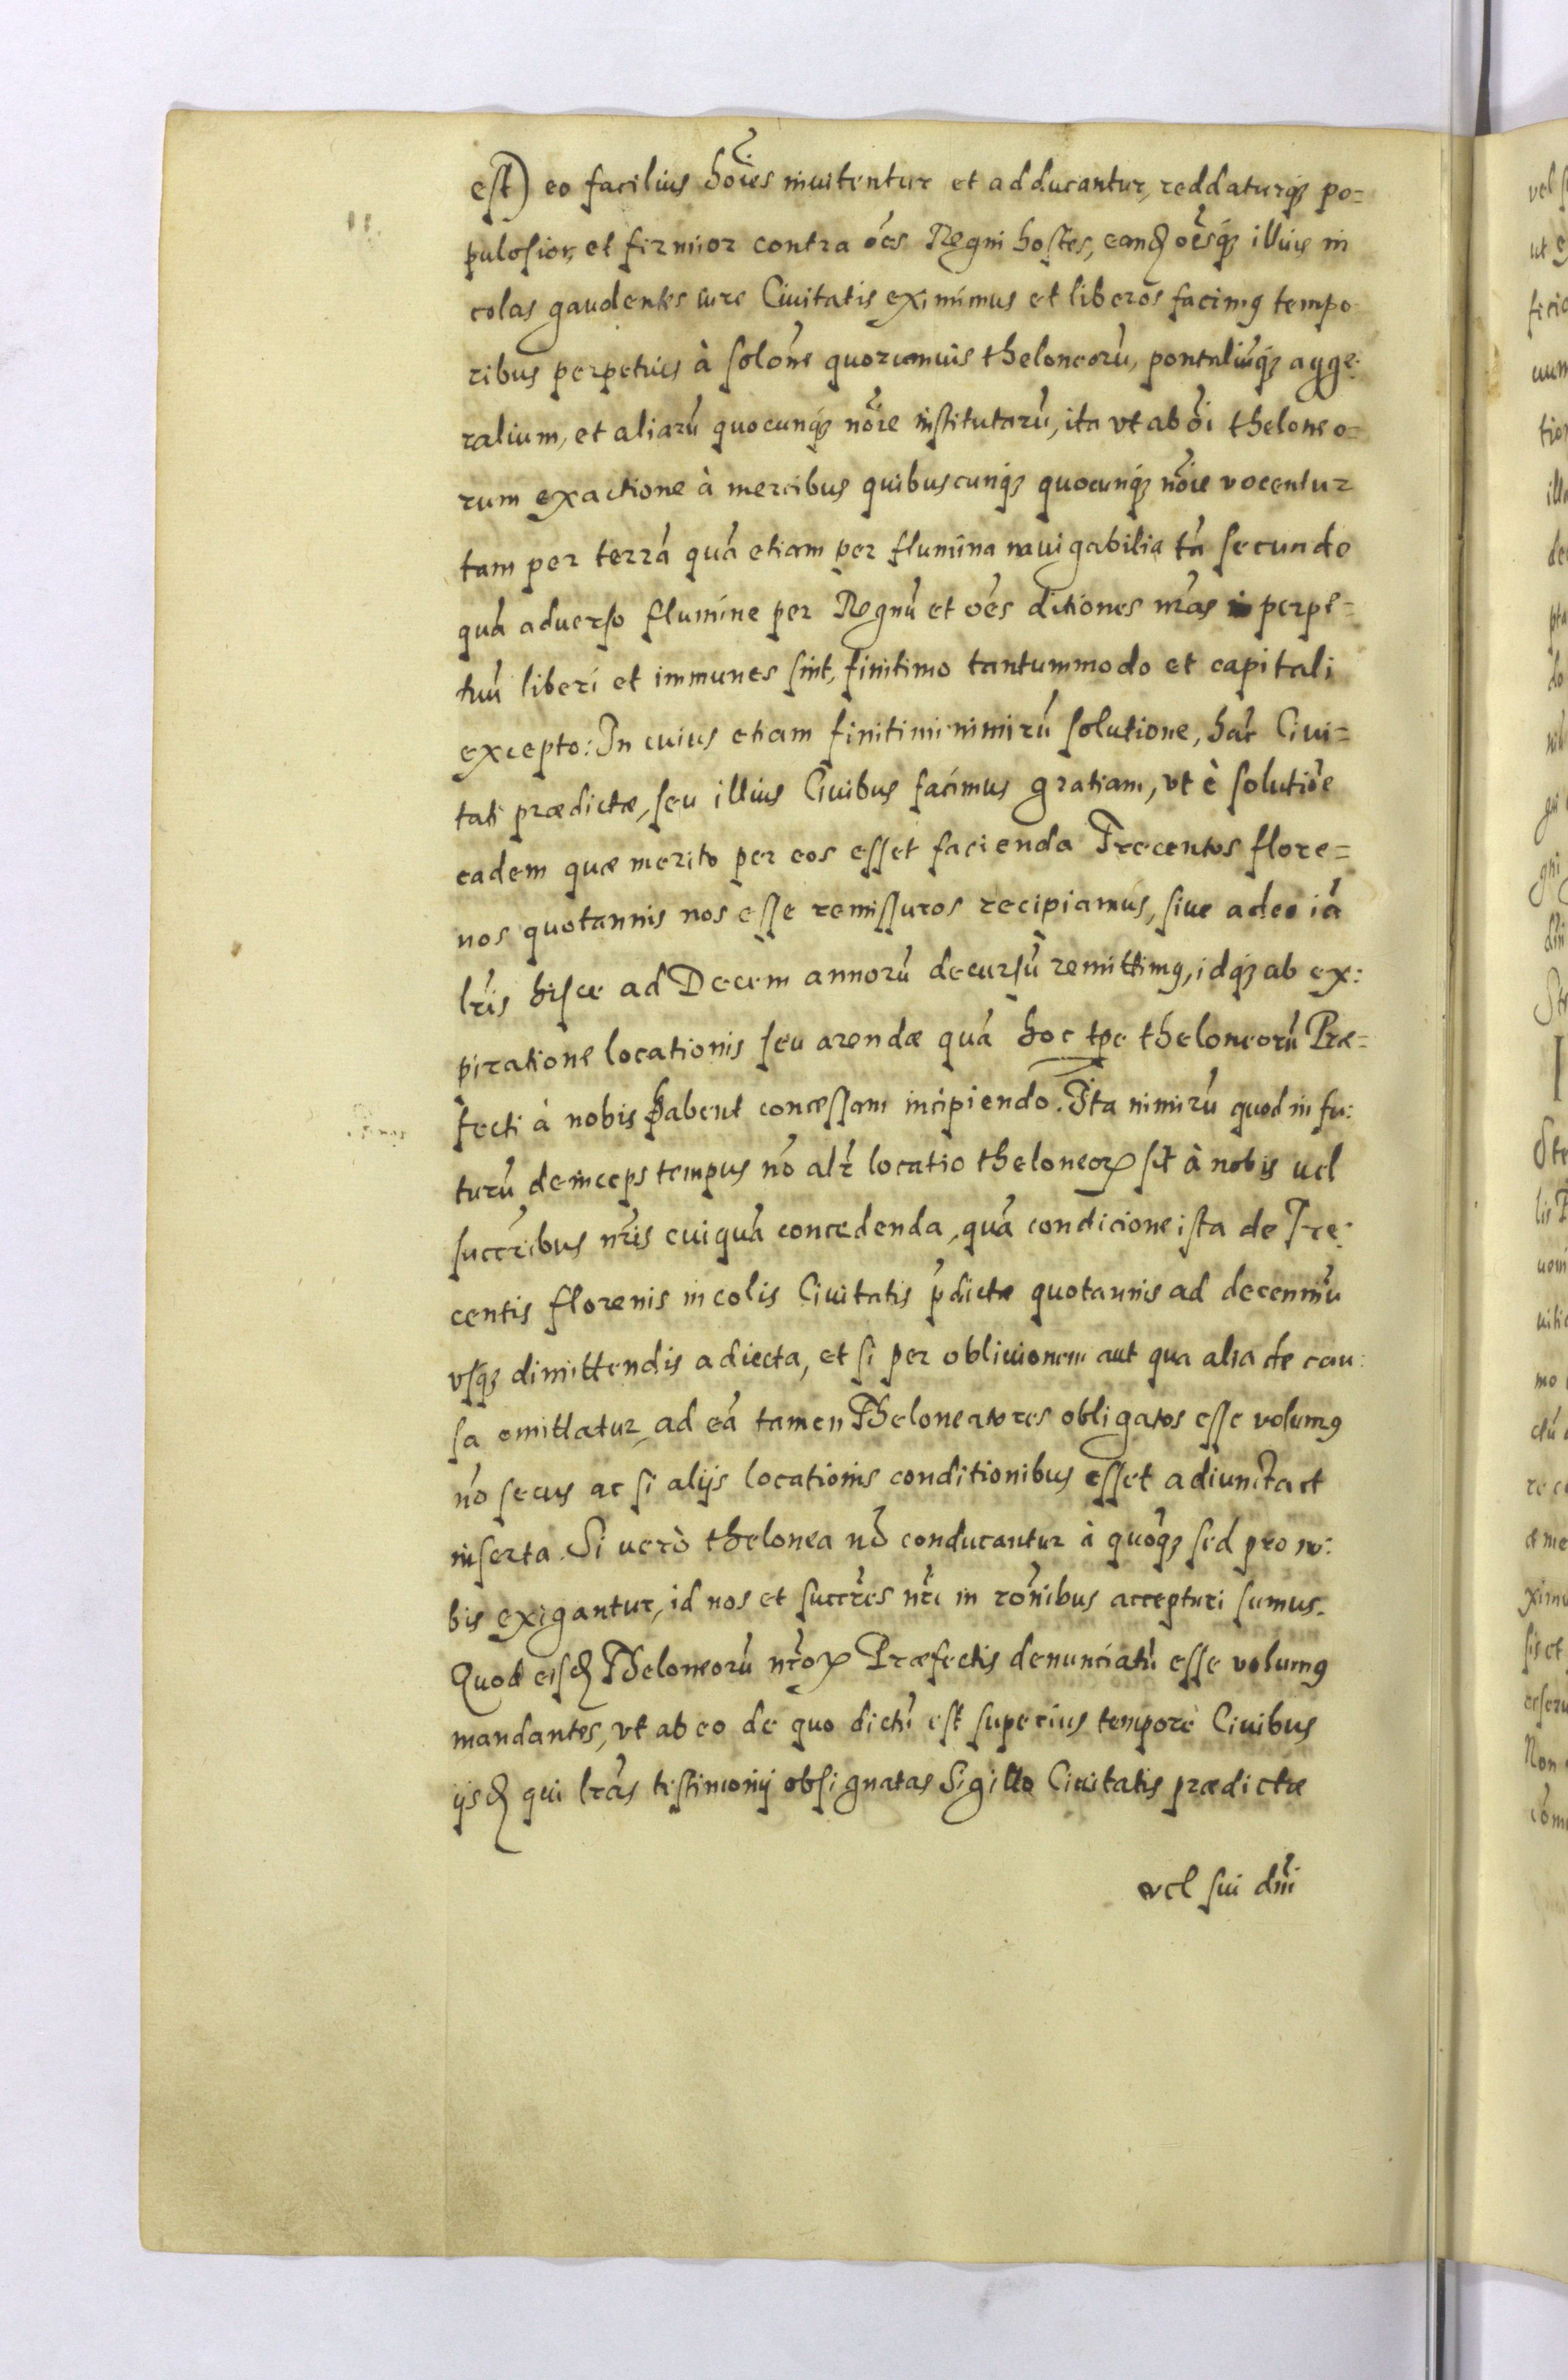 est) eo facilius hoĩes inuitentur et adducantur, reddaturq́ꝫ po=
pulosior, et firmior contra oẽs Regni hostes, eandẽ oẽsq́ꝫ illius in
colas gaudentes iure Ciuitatis eximimus et liberos facimꝰ tempo
ribus perpetuis à solõne quorumuis theloneorũ, pontaliũq́ꝫ agge:
ralium, et aliarũ quocunq́ꝫ nõie institutarũ, ita vt ab oĩ theloneo=
rum exactione à mercibus quibuscunq́ꝫ quocunq́ꝫ nõie vocentur
tam per terrã quã etiam per flumina nauigabilia tã secundo
quã aduerso flumine per Regnũ et oẽs ditiones nrãs in perpe=
tuũ liberi et immunes sint, finitimo tantummodo et capitali
excepto: In cuius etiam finitimi nimirũ solutione, hãc Ciui=
tati prædictæ, seu illius Ciuibus facimus gratiam, vt è solutiõe
eadem quæ merito per eos esset facienda Trecentos flore=
nos quotannis nos esse remissuros recipiamus, siue adeo iã
lrĩs hisce ad Decem annorũ decursũ remittimꝰ, idq́ꝫ ab ex:
piratione locationis seu arendæ quã hoc tpe theloneorũ Præ=
fecti à nobis habent concessam incipiendo. Ita nimirũ quod in fu:
turũ deinceps tempus nõ alr̃ locatio theloneoꝝ sit à nobis uel
succribus nrĩs cuiquã concedenda, quã condicione ista de Tre:
centis florenis incolis Ciuitatis p̃dictæ quotannis ad decenniũ
vsq́ꝫ dimittendis adiecta, et si per obliuionem aut qua alia de cau:
sa omittatur, ad eã tamen Theloneatores obligatos esse volumꝰ
nõ secus ac si alijs locationis conditionibus esset adiuncta et
inserta. Si uerò thelonea nõ conducantur à quoq́ꝫ sed pro no:
bis exigantur, id nos et succrẽs nrĩ in rõnibus accepturi sumus.
Quod eisdẽ Theloneorũ nrõꝝ Præfectis denunciatũ esse volumꝰ
mandantes, vt ab eo de quo dictũ est superius tempore Ciuibus
ijsdẽ qui lrãs testimonij obsignatas Sigillo Ciuitatis prædictæ
vel sui dnĩ